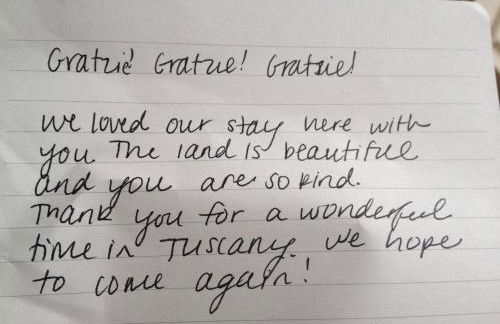 Gratzie! Gratzie! Gratzie!
We loved our stay here with
you. The land is beautiful
and you are so kind.
Thank you for a wonderful
time in Tuscany. We hope
to come again!